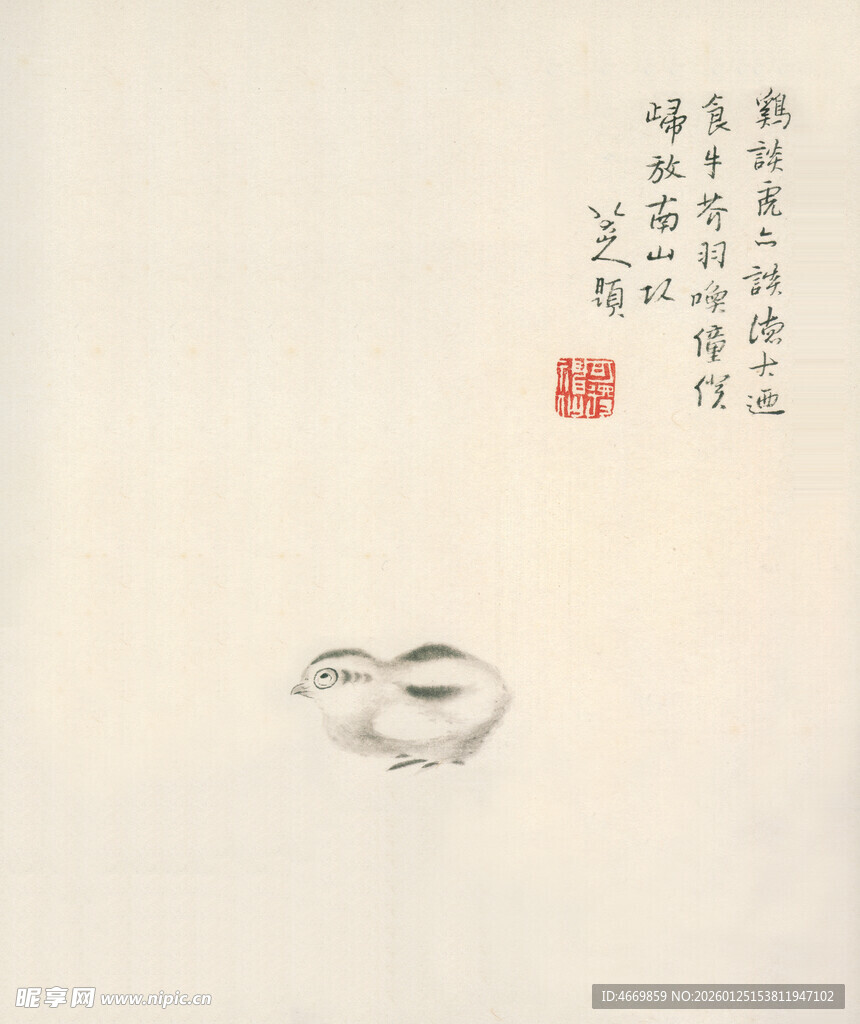 鷄談虎亦談德大迺
食牛芥羽喚僮僕
歸放南山
八大山人題
可得神仙
昵享网 www.nipic.cn
ID:4669859 NO:20260125153811947102